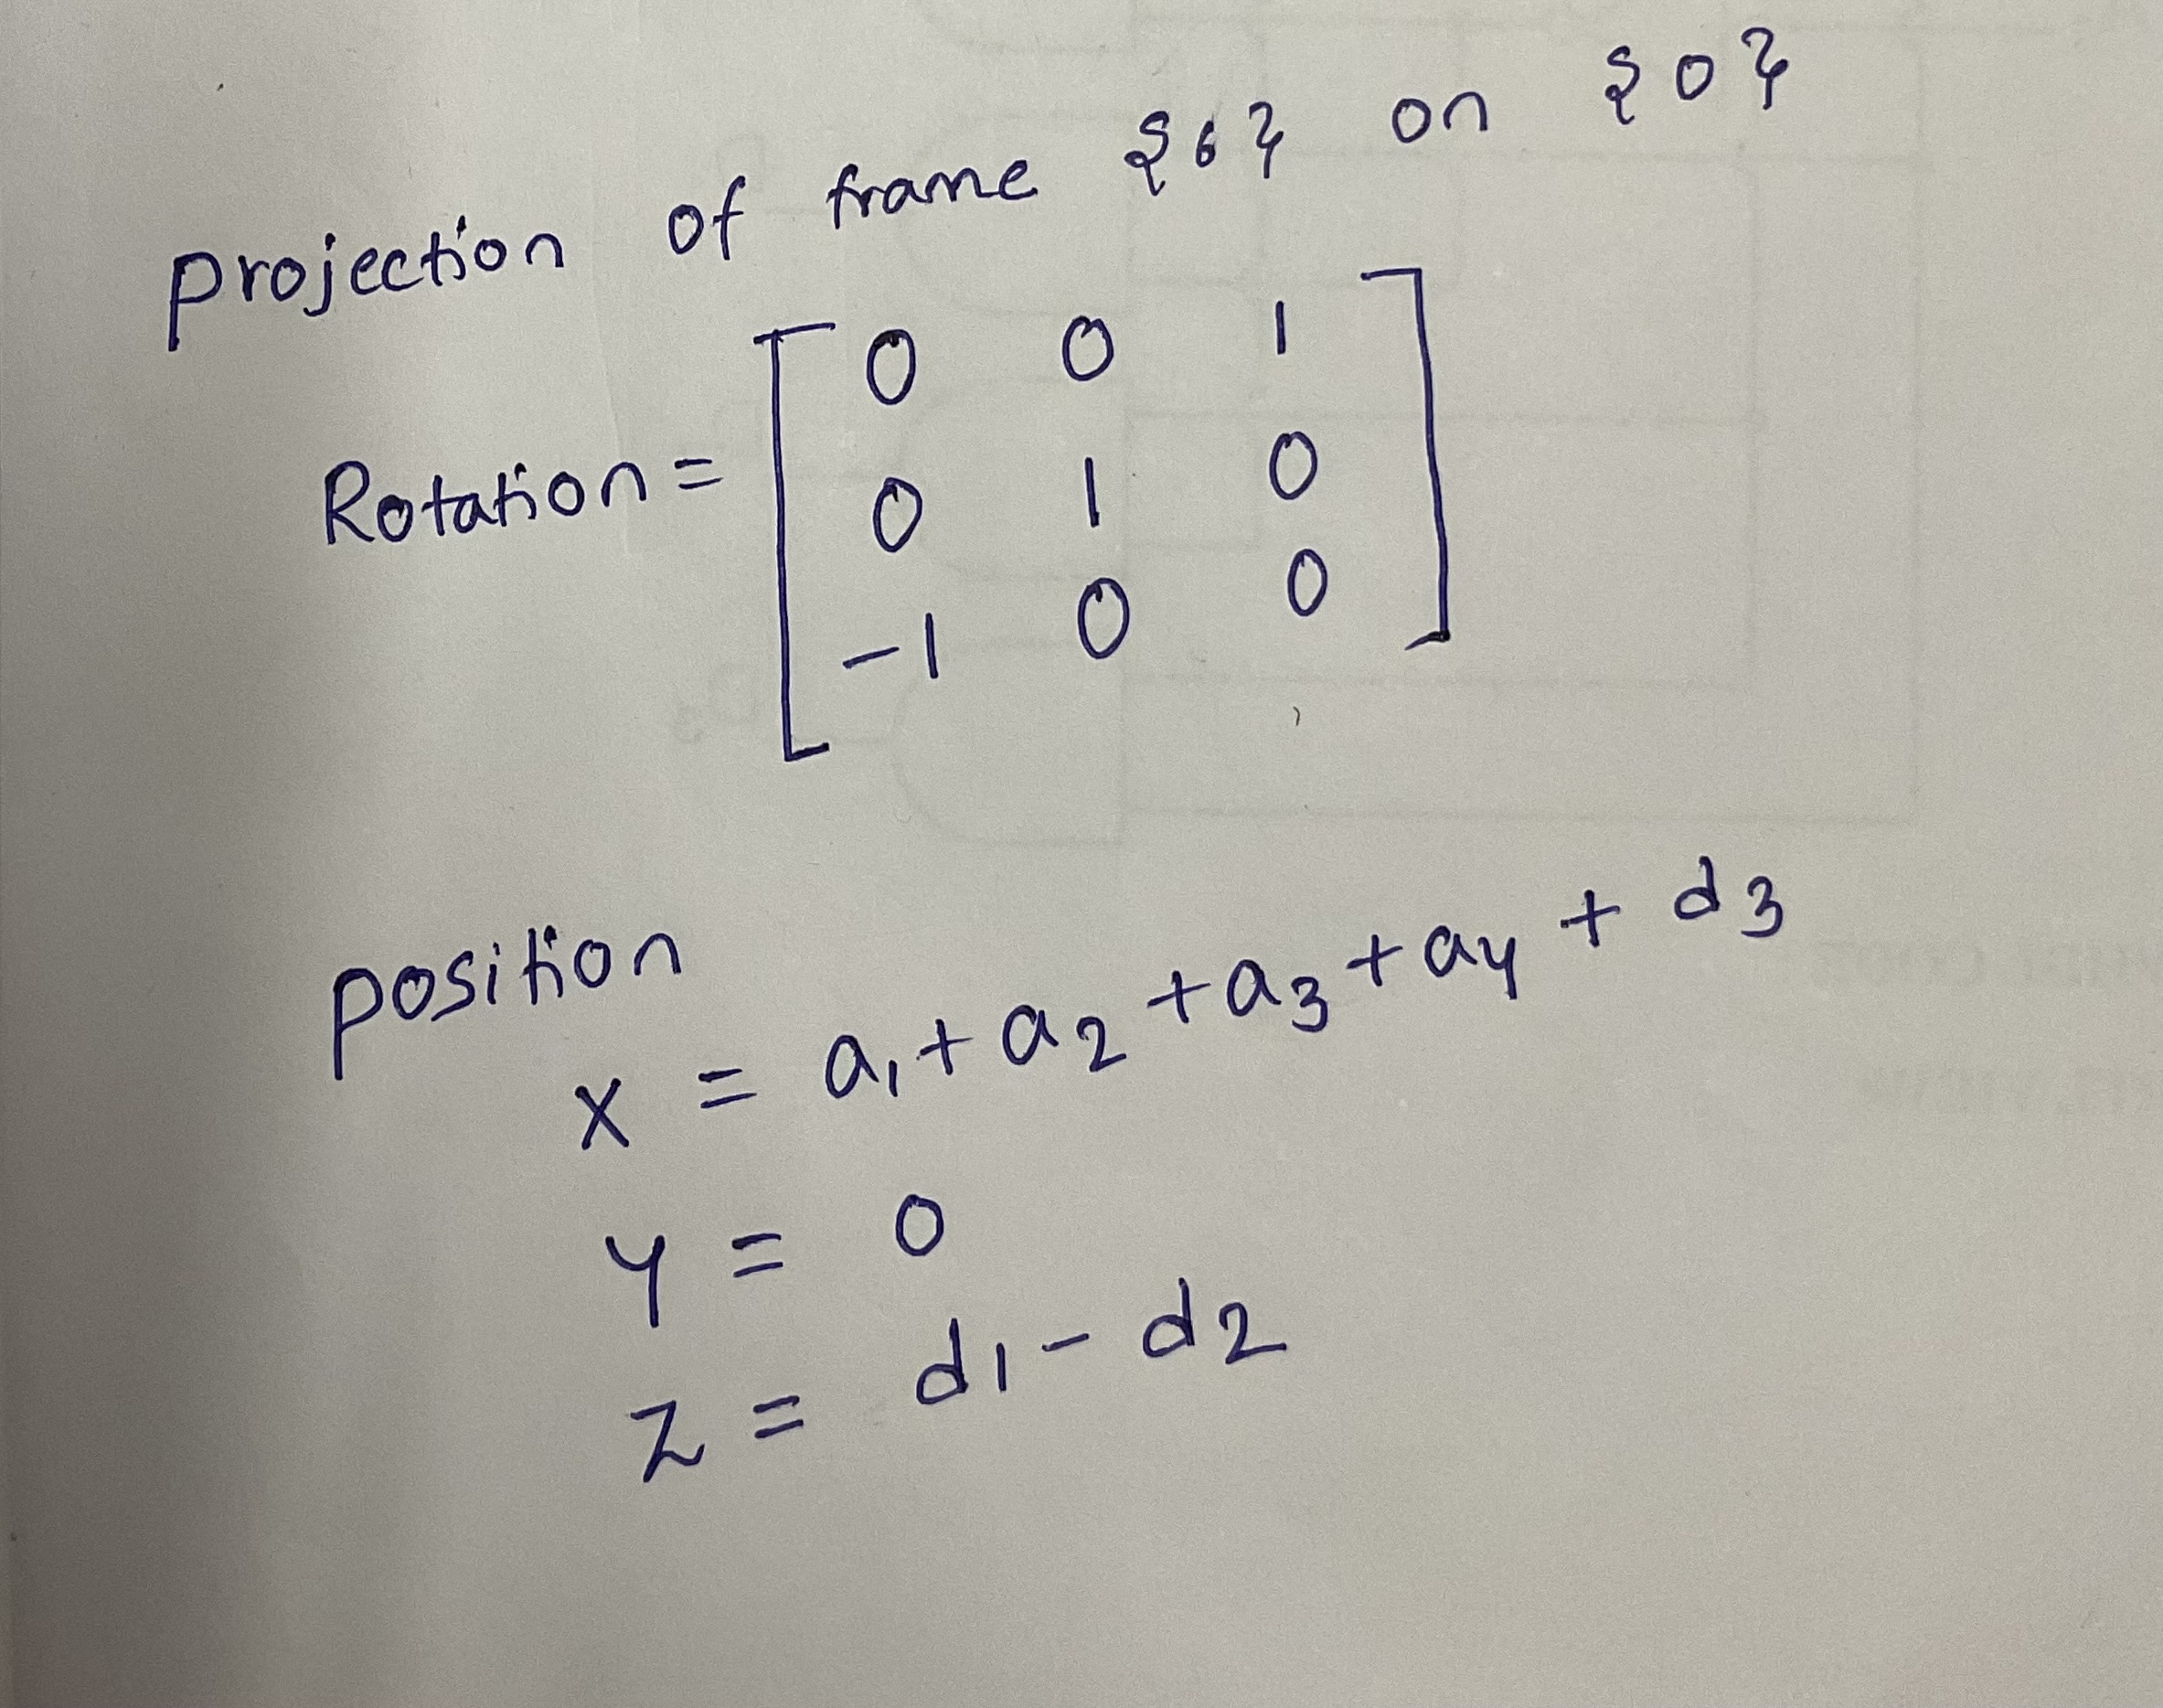 Projection of frame {6} on {0}
Rotation = [ 0 0 1
0 1 0
-1 0 0 ]
Position
x = a₁ + a₂ + a₃ + a₄ + d₃
y = 0
z = d₁ - d₂